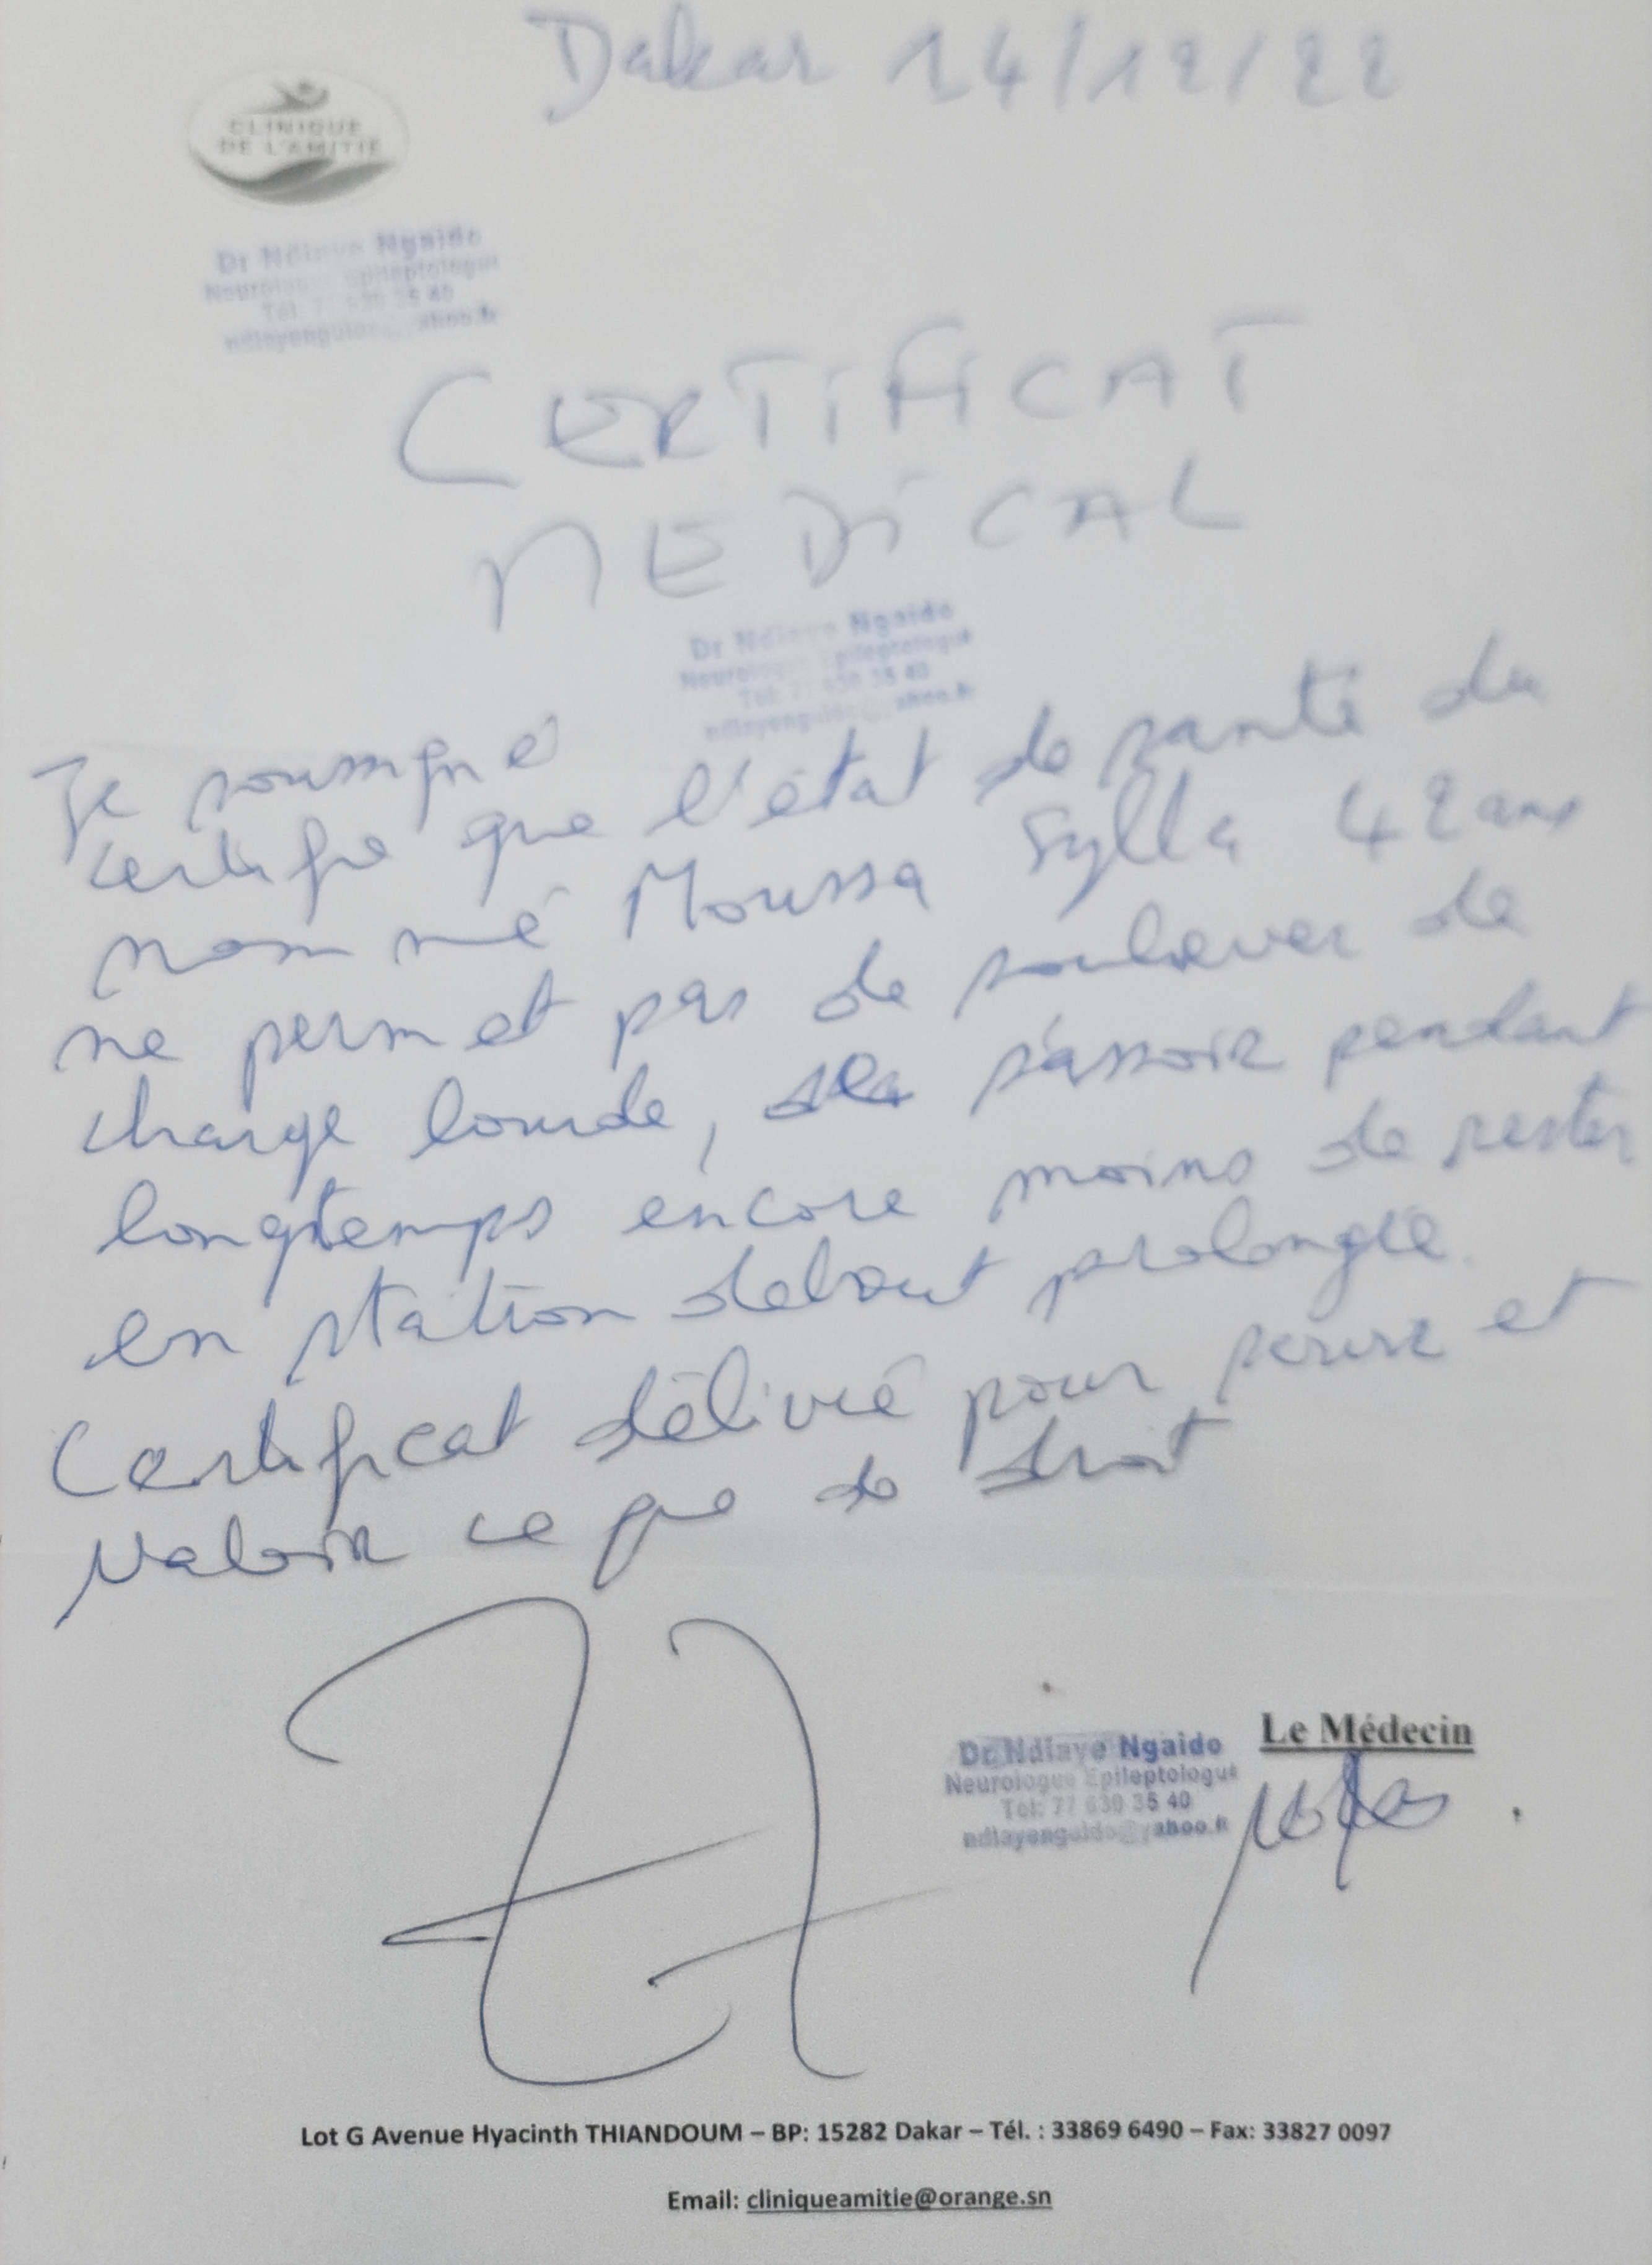 Dakar 14/12/22
CLINIQUE
DE L'AMITIE
Dr Ndiaye Ngaido
Neurologue Epileptologue
Tél: 77 630 35 40
CERTIFICAT
MEDICAL
Dr Ndiaye Ngaido
Neurologue Epileptologue
Tél: 77 630 35 40
Je soussigné
certifie que l'état de santé du
nommé Moussa Sylla 42 ans
ne permet pas de soulever de
charge lourde, de s'assoir pendant
longtemps encore moins de rester
en station debout prolongée.
Certificat délivré pour servir et
valoir ce que de droit
Le Médecin
Dr Ndiaye Ngaido
Neurologue Epileptologue
Tél: 77 630 35 40
Lot G Avenue Hyacinth THIANDOUM – BP: 15282 Dakar – Tél. : 33869 6490 – Fax: 33827 0097
Email: cliniqueamitie@orange.sn